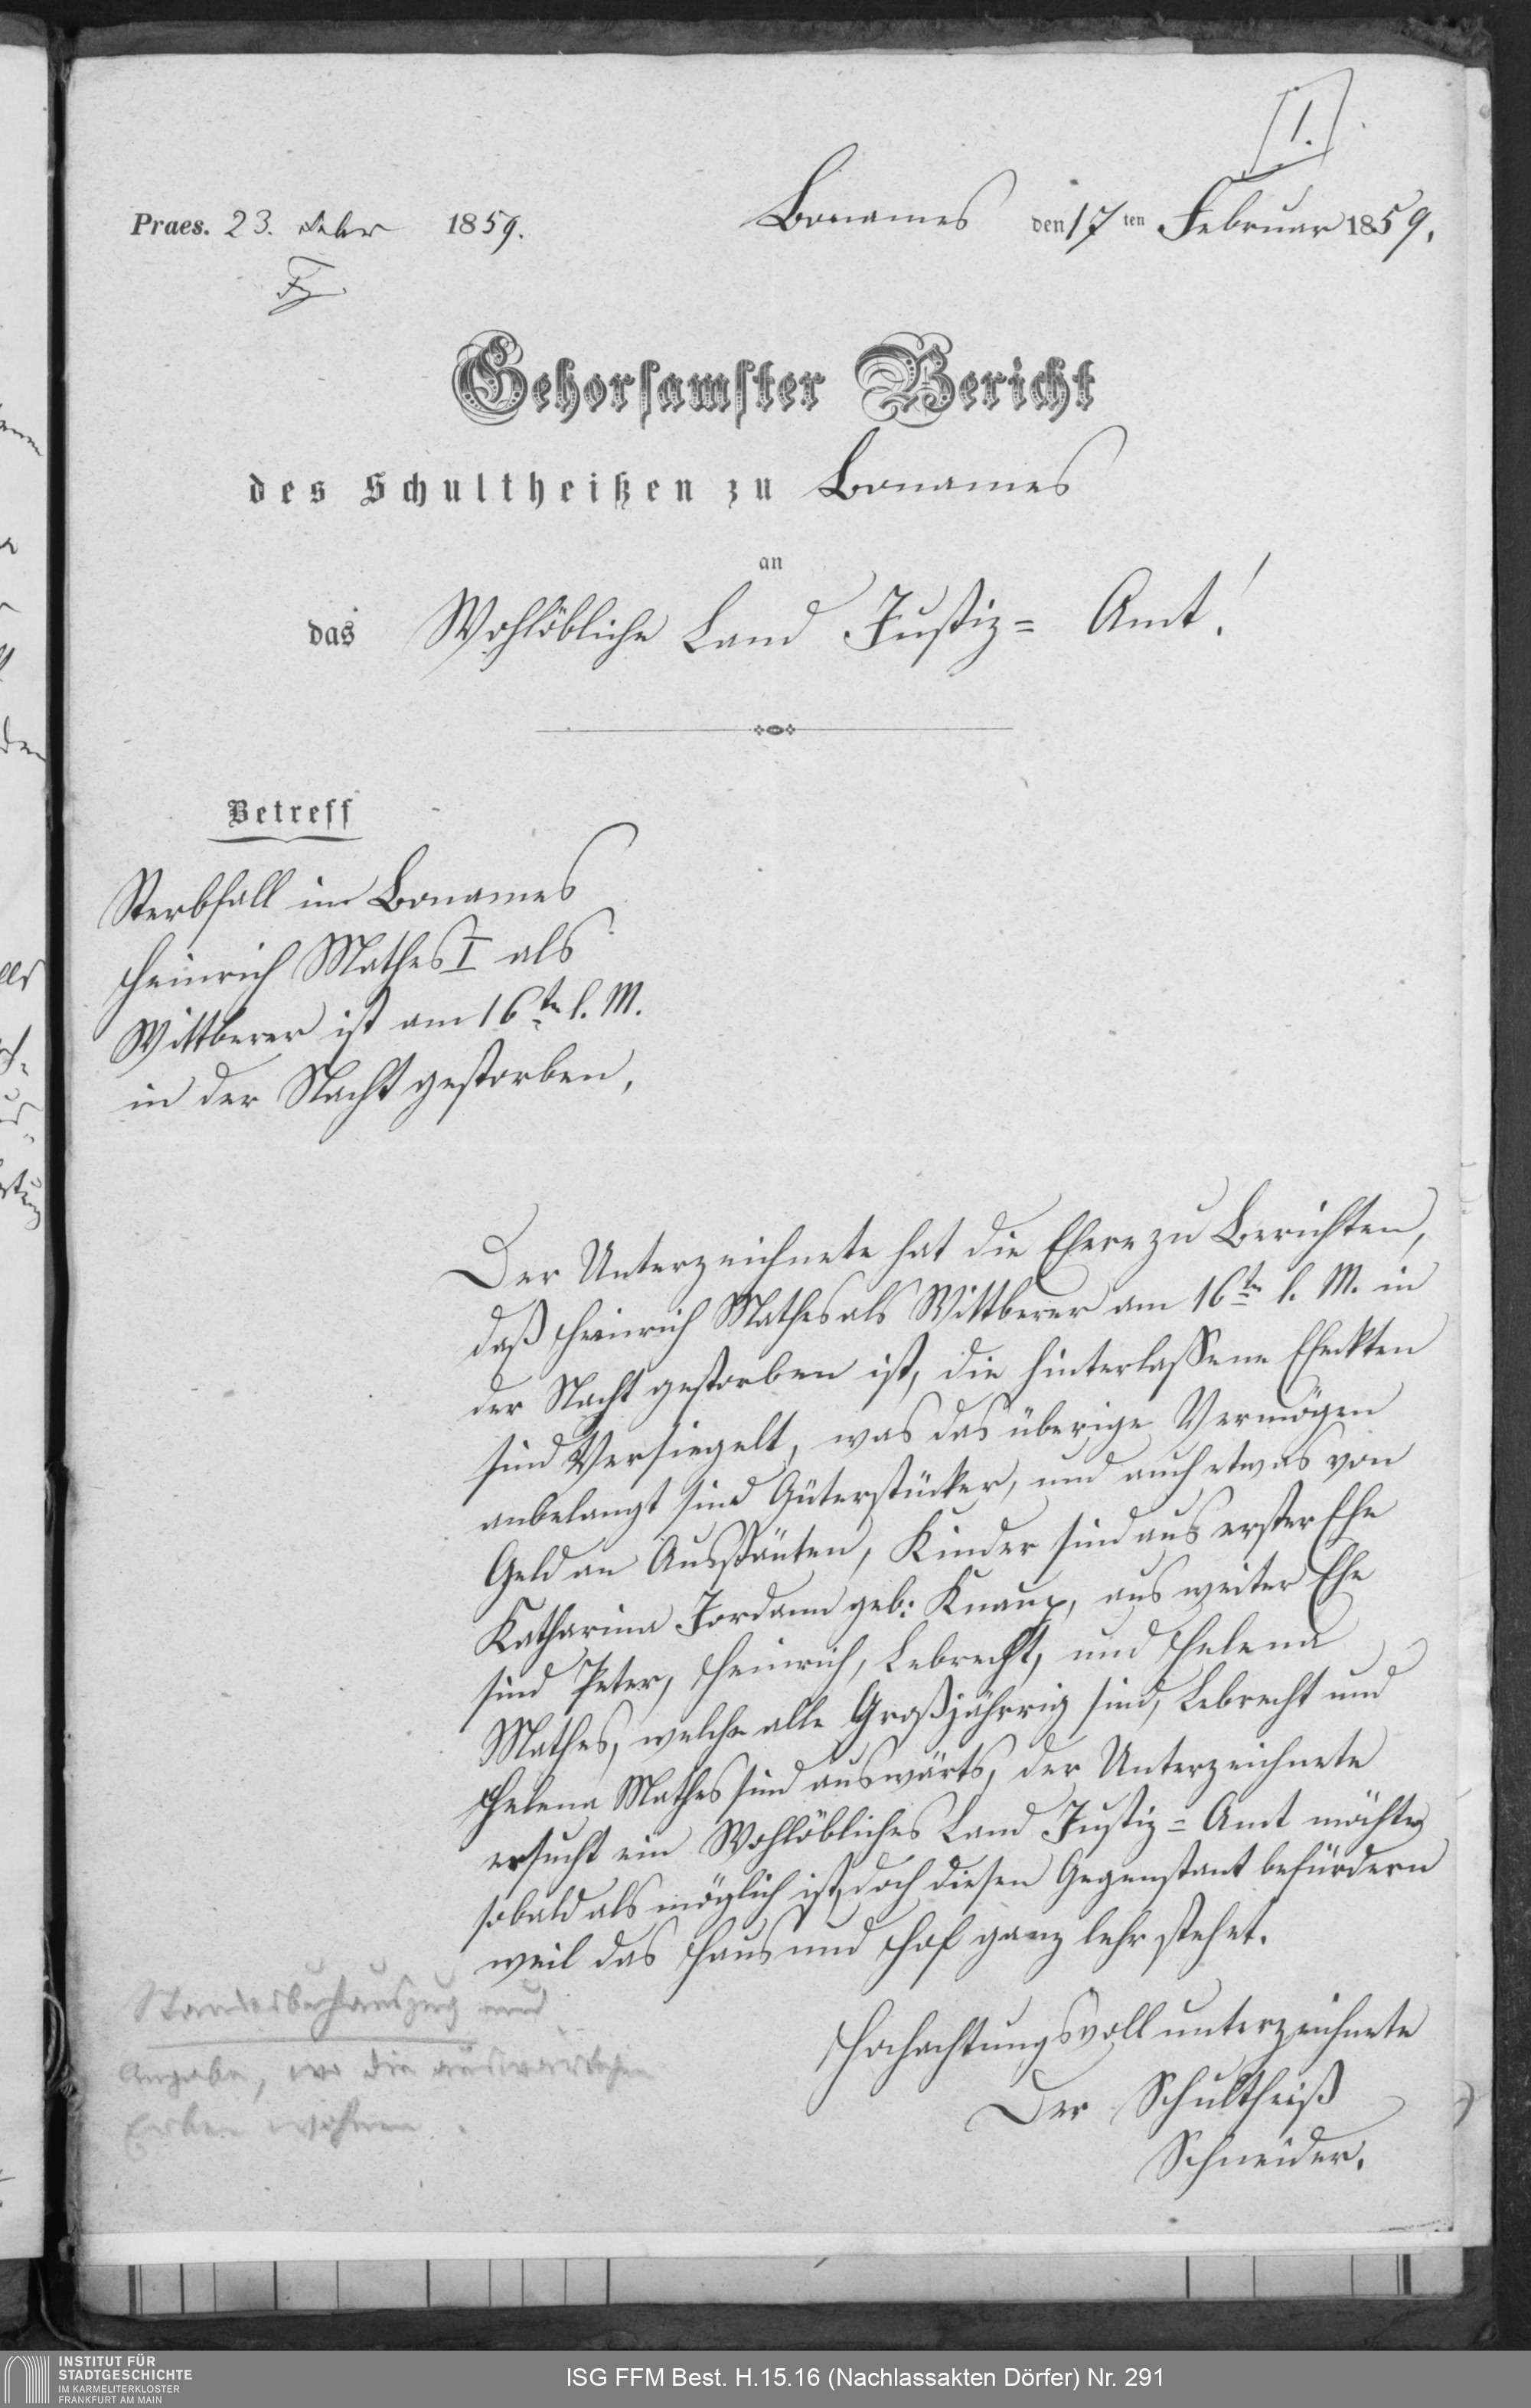 1.
Praes. 23. Febr 1859.
Bonames den 17ten Februar 1859.
Gehorsamster Bericht
des Schultheißen zu Bonames
an
das Wohlöbliche Land Justiz= Amt!
Betreff
Sterbfall in Bonames
Heinrich Mathes I als
Wittberer ist am 16ten l. M.
in der Nacht gestorben,
Der Unterzeichnete hat die Ehere zu Berichten,
daß Heinrich Mathes als Wittberer am 16ten l. M. in
der Nacht gestorben ist, die hinterlassene Efeckten
sind Versiegelt, was das überige Vermögen
anbelangt sind Güterstücker, und auch etwas von
Geld an Ausstänten, Kinder sind aus erster Ehe
Katharina Jordann geb: Knaup, aus zweiter Ehe
sind Peter, Heinrich, Lebrecht, und Helena
Mathes, welche alle Großjährrig sind, Lebrecht und
Helena Mathes sind auswärts, der Unterzeichnete
ersucht ein Wohlöbliches Land Justiz= Amt möchte
sobald als möglich ist, doch diesen Gegenstant befürdern
weil das Haus und Hof ganz lehr stehet.
Hochachtungsvoll unterzeichnete
Der Schultheiß
Schneider.
Standesbuchauszug und
Angabe, wo die auswärtigen
Erben wohnen.
INSTITUT FÜR
STADTGESCHICHTE
IM KARMELITERKLOSTER
FRANKFURT AM MAIN
ISG FFM Best. H.15.16 (Nachlassakten Dörfer) Nr. 291